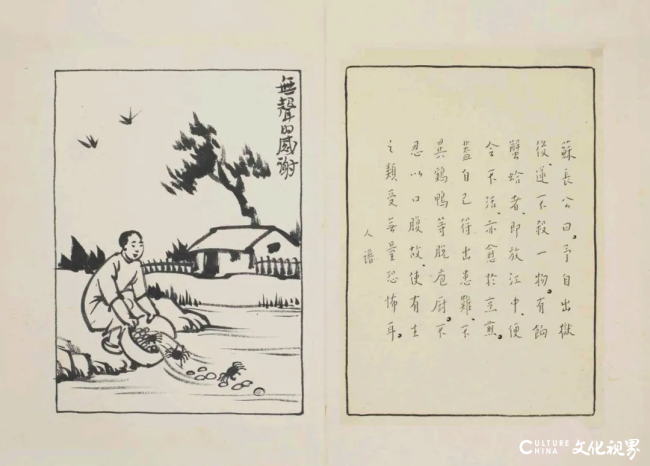 無聲的感謝
蘇長公曰。予自出獄
後遂不殺一物。有餉
蟹蛤者、即放江中、便
令不活、亦愈於烹煎。
蓋自己得出患難、不
異鷄鴨等脫庖厨。不
忍以口腹故、使有生
之類受無量恐怖耳。
人譜
CULTURE CHINA 文化视界